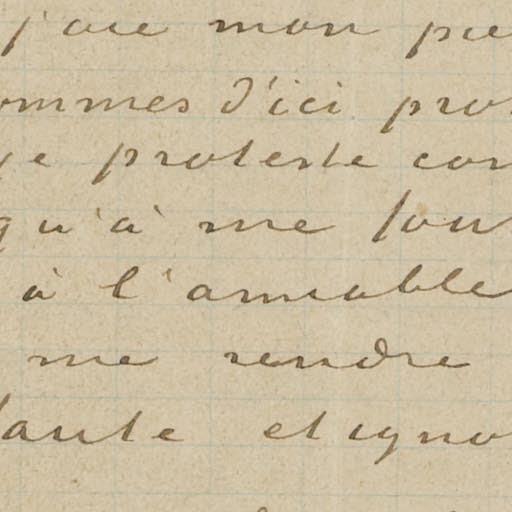 j'ai mon
ommes d'ici pro
je proteste con
qu'à me
à l'amiable
me rendre
et igno